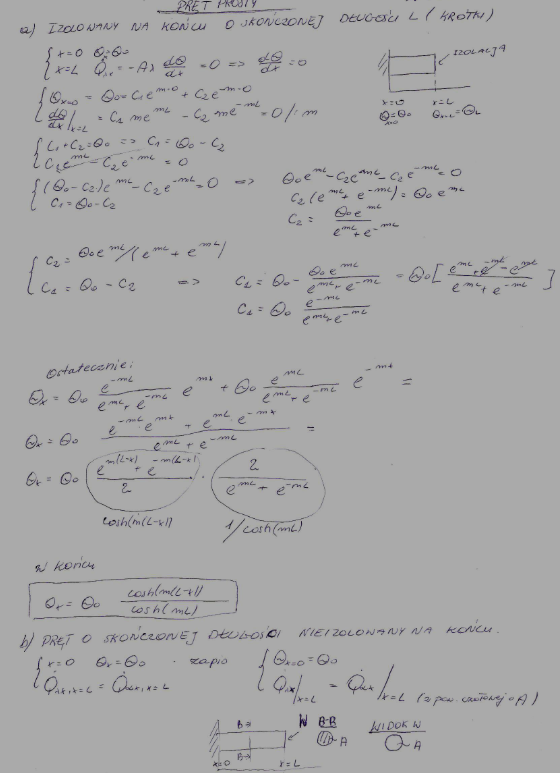 PRĘT PROSTY
a) IZOLOWANY NA KOŃCU O SKOŃCZONEJ DŁUGOŚCI L (KRÓTKI)
{ x=0 Θ=Θ₀
{ x=L Q̇ = -Aλ dΘ/dx = 0 => dΘ/dx = 0
IZOLACJA
x=0 x=L
Θ=Θ₀ Θx=L=ΘL
{ Θx=0 = Θ₀ = C₁e^m·0 + C₂e^-m·0
{ dΘ/dx |x=L = C₁ me^mL - C₂ me^-mL = 0 /:m
{ C₁+C₂=Θ₀ => C₁=Θ₀-C₂
{ C₁e^mL - C₂e^-mL = 0
{ (Θ₀-C₂)e^mL - C₂e^-mL = 0 => Θ₀e^mL - C₂e^mL - C₂e^-mL = 0
{ C₁=Θ₀-C₂ C₂(e^mL + e^-mL) = Θ₀e^mL
C₂ = Θ₀e^mL / e^mL+e^-mL
{ C₂ = Θ₀e^mL/(e^mL + e^-mL)
{ C₁ = Θ₀ - C₂ => C₁ = Θ₀ - Θ₀e^mL / e^mL+e^-mL = Θ₀[ e^mL+e^-mL-e^mL / e^mL+e^-mL ]
C₁ = Θ₀ e^-mL / e^mL+e^-mL
Ostatecznie:
Θx = Θ₀ e^-mL / e^mL+e^-mL e^mx + Θ₀ e^mL / e^mL+e^-mL e^-mx =
Θx = Θ₀ e^-mL·e^mx + e^mL·e^-mx / e^mL+e^-mL =
Θx = Θ₀ e^m(L-x)+e^-m(L-x) / 2 · 2 / e^mL+e^-mL
cosh(m(L-x)) 1/cosh(mL)
w końcu
Θx = Θ₀ cosh(m(L-x)) / cosh(mL)
b) PRĘT O SKOŃCZONEJ DŁUGOŚCI NIEIZOLOWANY NA KOŃCU.
{ x=0 Θx=Θ₀ { Θx=0=Θ₀
{ Q̇λx,x=L = Q̇αx,x=L { Q̇λx|x=L = Q̇αx|x=L
B W B-B WIDOK W
A A
B
x=0 x=L